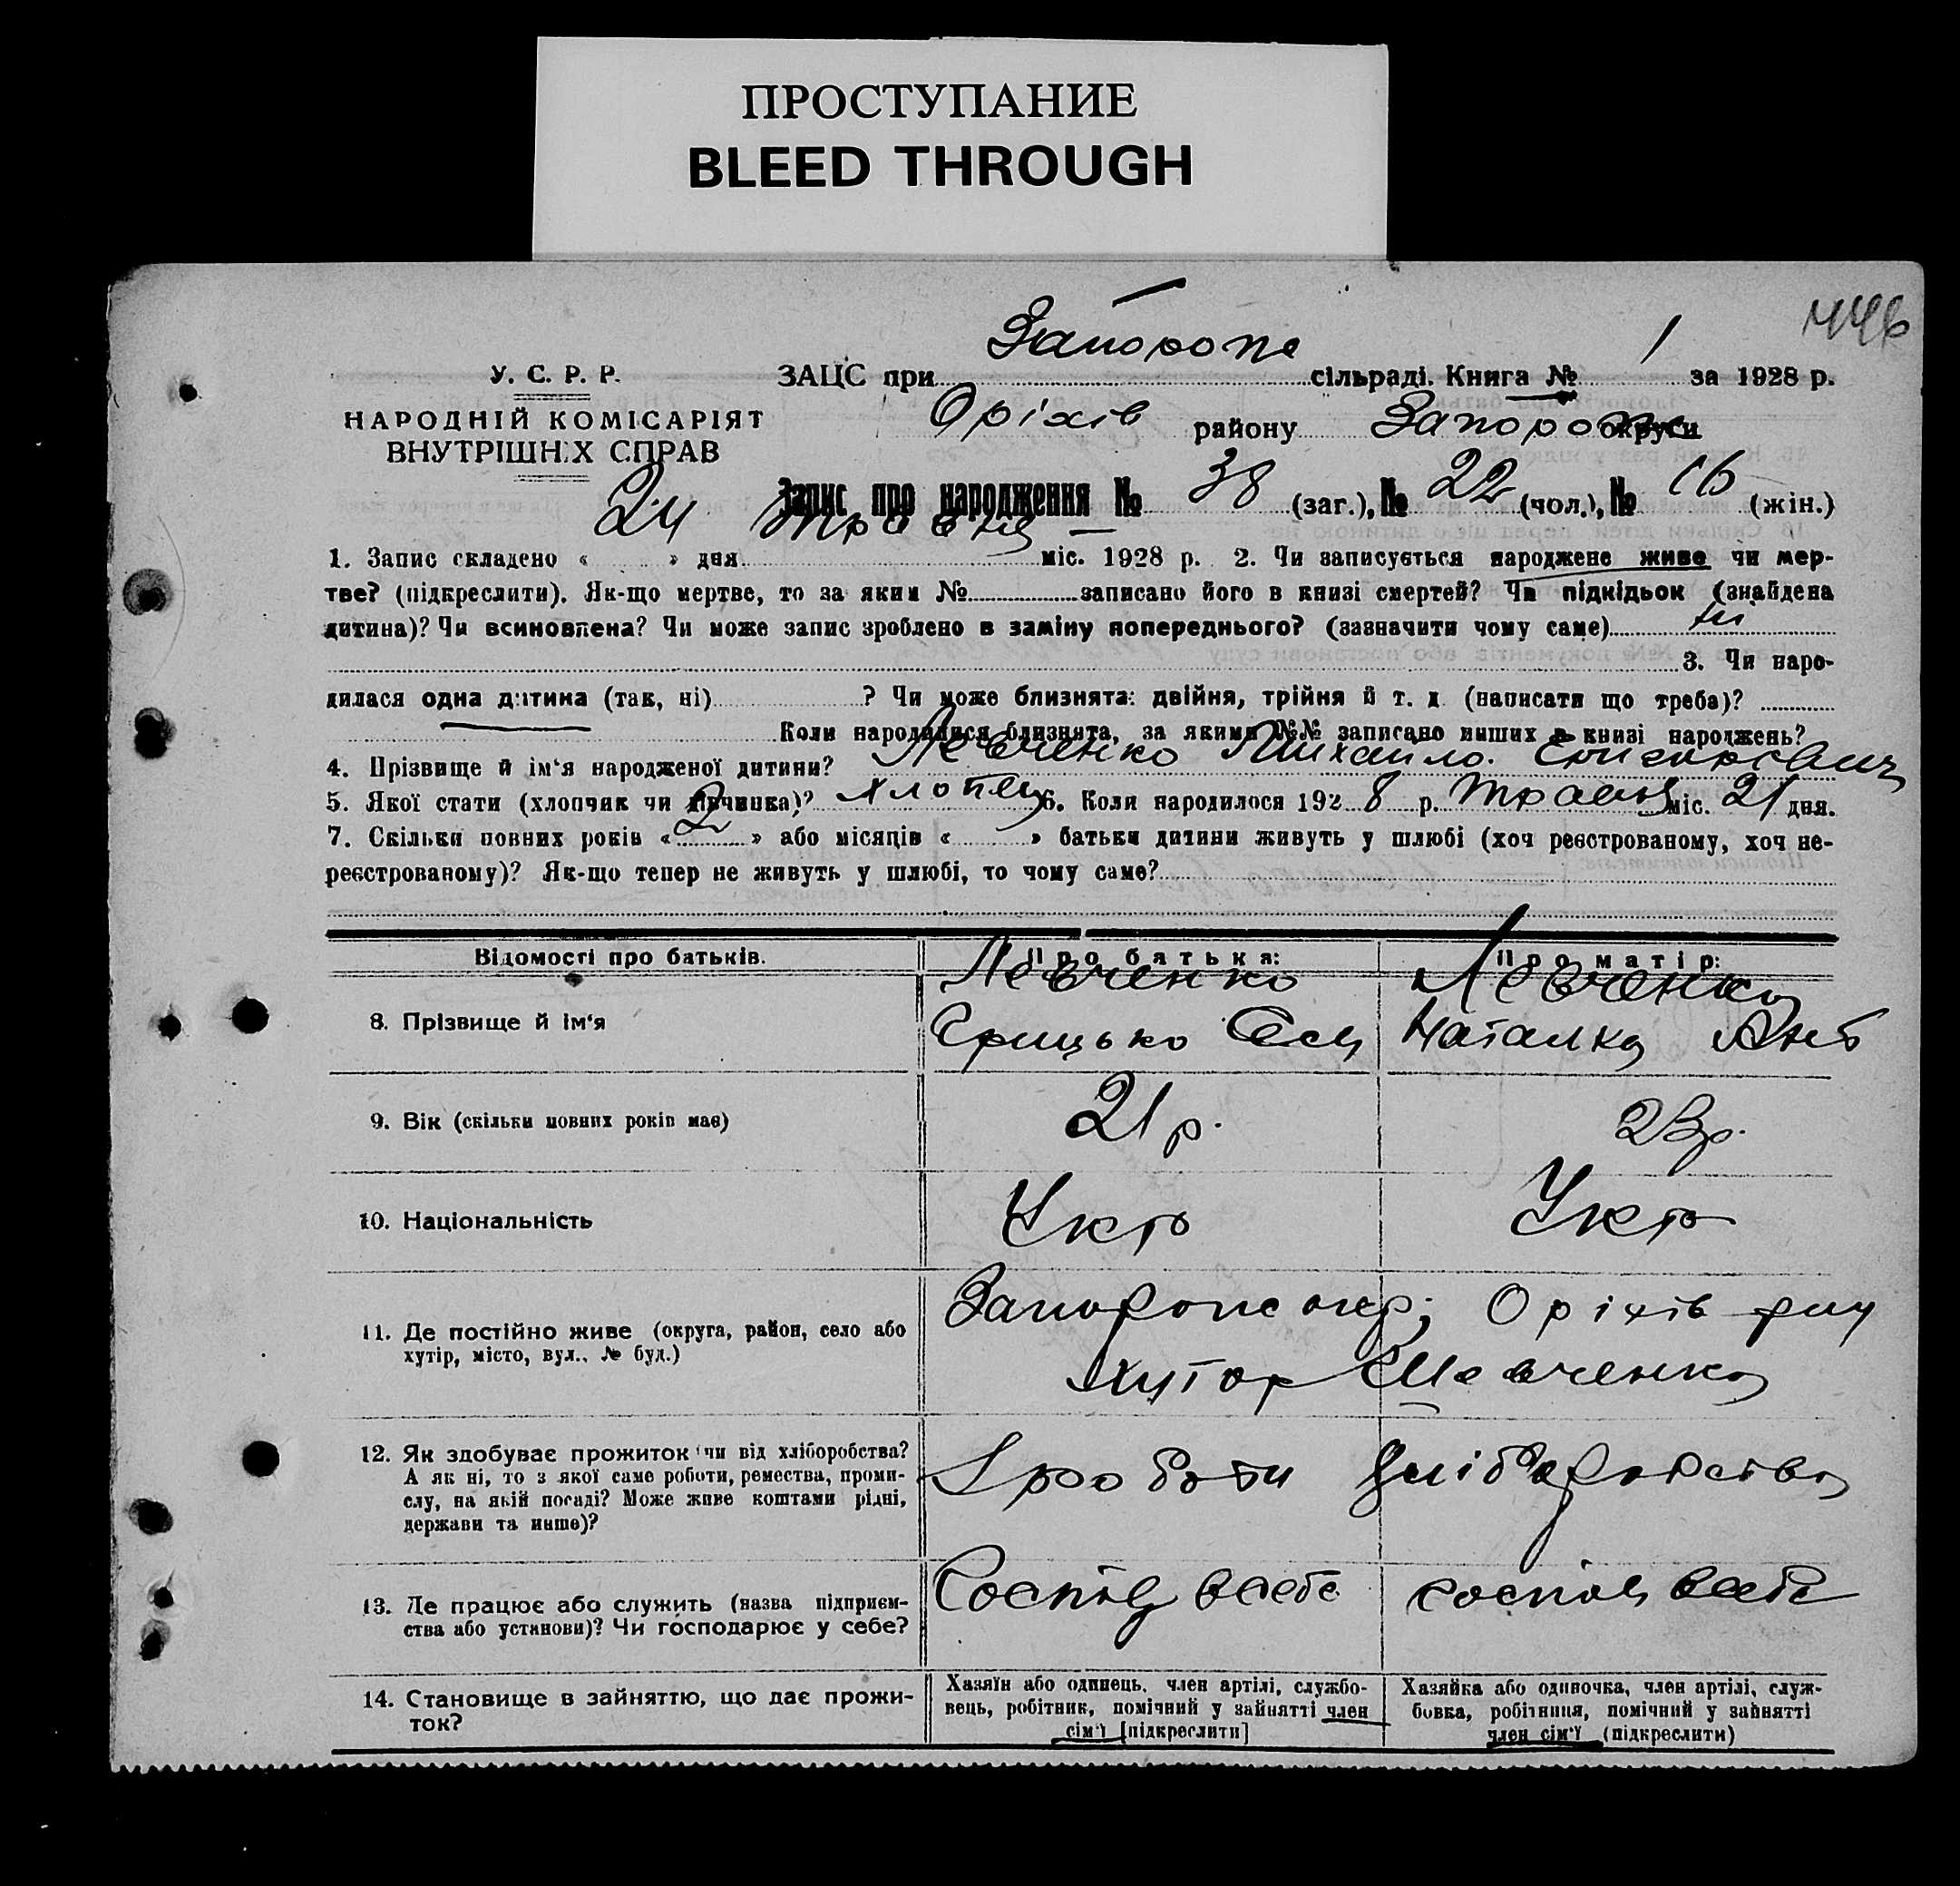 ПРОСТУПАНИЕ
BLEED THROUGH
446
У. С. Р. Р.
НАРОДНІЙ КОМІСАРІЯТ
ВНУТРІШНІХ СПРАВ
ЗАЦС при Запорож сільраді. Книга № 1 за 1928 р.
Оріхів району Запорож округи
Запис про народження № 38 (заг.), № 22 (чол.), № 16 (жін.)
1. Запис складено « 24 » дня травня міс. 1928 р. 2. Чи записується народжене живе чи мер-
тве? (підкреслити). Як-що мертве, то за яким № записано його в книзі смертей? Чи підкідьок (знайдена
дитина)? Чи всиновлена? Чи може запис зроблено в заміну попереднього? (зазначити чому саме) ні
3. Чи наро-
дилася одна дитина (так, ні) ? Чи може близнята: двійня, трійня й т. д. (написати що треба)?
Коли народилися близнята, за якими №№ записано инших в книзі народжень?
4. Прізвище й ім'я народженої дитини? Левченко Михайло
5. Якої стати (хлопчик чи дівчинка)? хлопец 6. Коли народилося 192 8 р. травня міс. 21 дня.
7. Скільки повних років « 2 » або місяців « » батьки дитини живуть у шлюбі (хоч реєстрованому, хоч не-
реєстрованому)? Як-що тепер не живуть у шлюбі, то чому саме?
Відомості про батьків. Про батька: Про матір:
8. Прізвище й ім'я Левченко Левченко
Грицько Наталка Ант
9. Вік (скільки повних років має) 21 р. 23 р.
10. Національність Укр Укр
11. Де постійно живе (округа, район, село або
хутір, місто, вул., № буд.) Запорож окр; Оріхів
хутор Шевченко
12. Як здобуває прожиток (чи від хліборобства?
А як ні, то з якої саме роботи, ремества, проми-
слу, на якій посаді? Може живе коштами рідні,
держави та инше)? З роботи хліборобства
13. Де працює або служить (назва підприєм-
ства або установи)? Чи господарює у себе?
14. Становище в зайняттю, що дає прожи-
ток?
Хазяїн або одинець, член артілі, службо-
вець, робітник, помічний у зайнятті член
сім'ї [підкреслити]
Хазяйка або одиночка, член артілі, служ-
бовка, робітниця, помічний у зайнятті
член сім'ї (підкреслити)